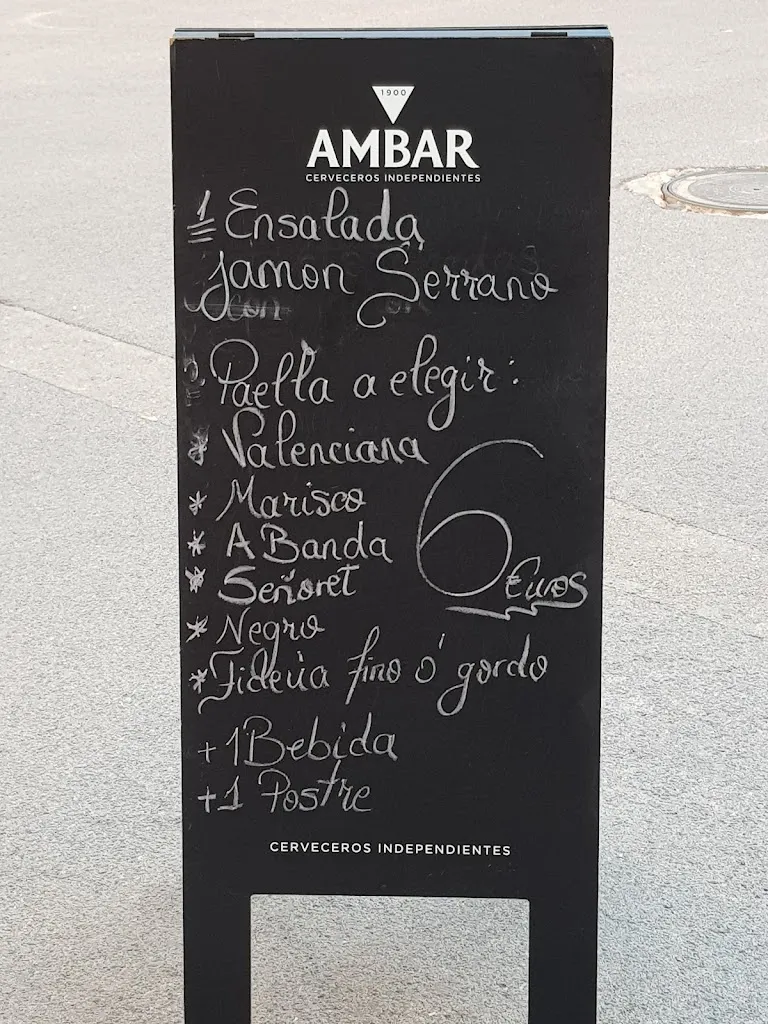 1900
AMBAR
CERVECEROS INDEPENDIENTES
1 Ensalada
Jamon Serrano
con
Paella a elegir:
* Valenciana
* Marisco
* A Banda
* Señoret
* Negro
* Fideúa fino ó gordo
6 Euros
+ 1 Bebida
+ 1 Postre
CERVECEROS INDEPENDIENTES